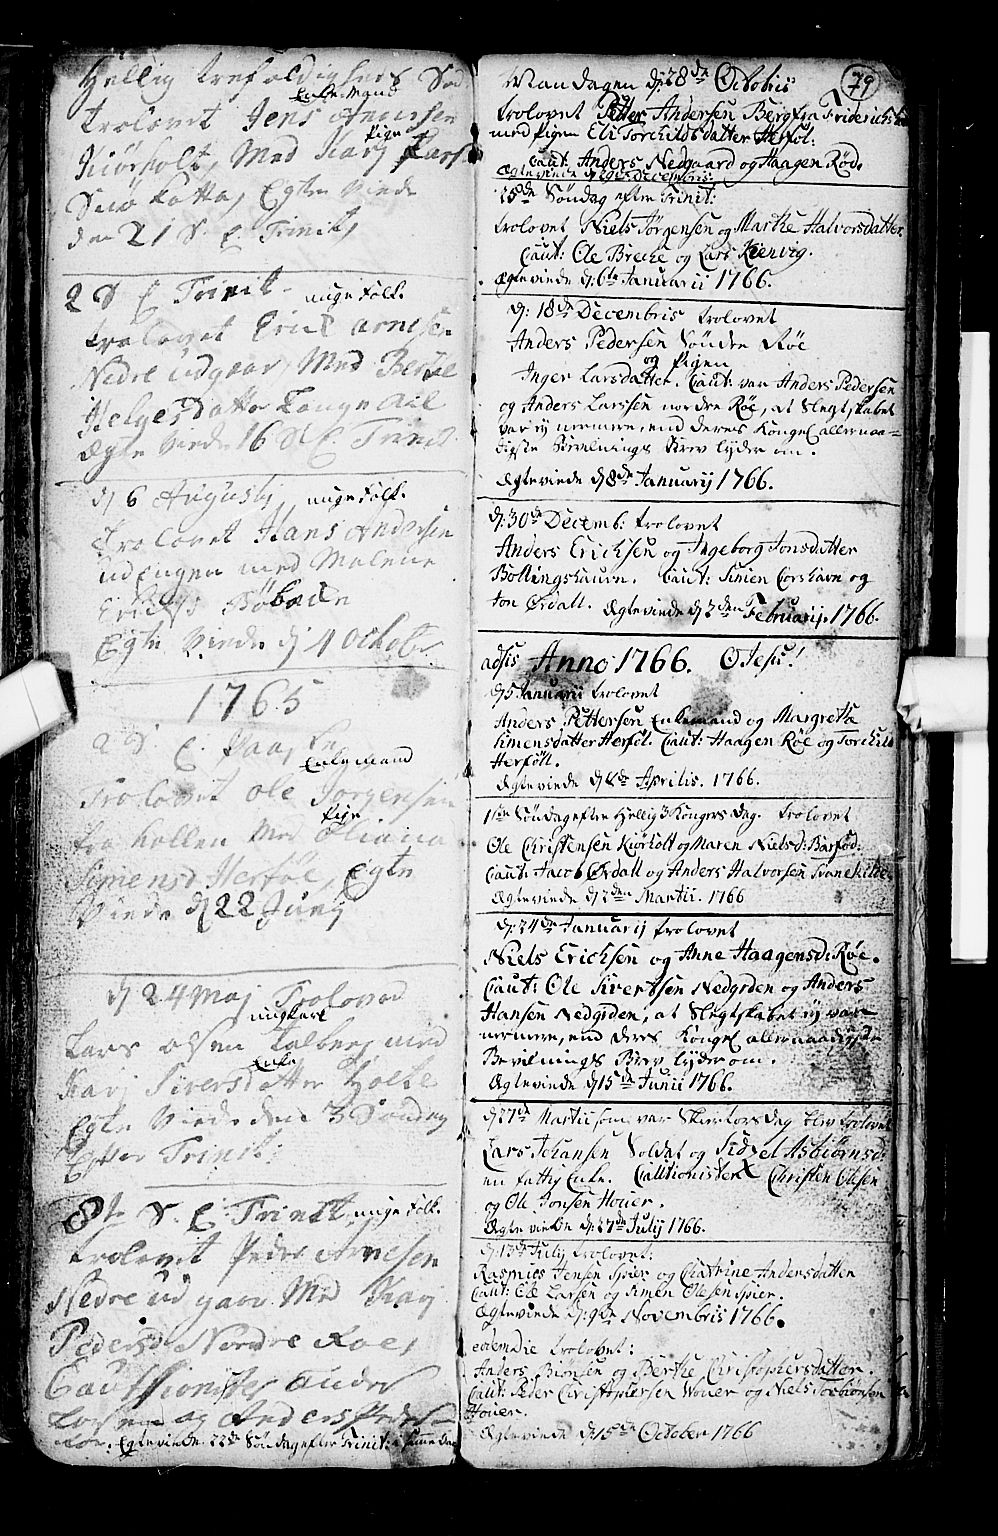 Hellig trefoldigheds Sød
Enkemand
trolovet Jens Andersen
Pige
Kiørholt, Med Karj Lars
Smørkotta, Egte Viede
den 21 S. E Trinit,
2 S E Trinit. unge Folk.
trolovet Erick Arnesen
Nedre udgaar, Med Berthe
Helgesdatter Lange
Egte Viede 16 S E Trinit
dj 6 Augustj unge Folk.
trolovet Hans Andersen
ud Engen med Malene
Ericks
Egte Viede dj 4 Octobr
1765
2 S. E. Paaske
Enkemand
Trolovet Ole Jorgensen
Pige
fra hollen Med Oliana
Simensd. Herføl, Egte
Viede dj 22 Junj
dj 24 Maj Troloved
ungkarl
Lars Olsen Kalberg med
Enke
Karj Siversdatter Holte
Egte Viede den 3 Søndag
Efter Trinit:
8de S. E Trinit, unge Folk.
trolovet Peder Arnesen
Nedre udgaar Med Karj
Pedersd Nordre Roe,
Cautsionister Anders
Larsen og Anders Peder-
sen. Egteviede 22de Søndag efter Trinit: samme Dag
79
Mandagen dj 28de Octobris
trolovet Petter Andersen Berg fra Friderichstad
med Pigen Eli Torchildsdatter Herføl:
Caut: Anders Nedgaard og Haagen Rød.
Ægteviede Decembris.
15de Søndag efter Trinit:
trolovet Niels Jørgensen og Marthe Halvorsdatter
Caut: Ole Brecke og Lars Kienvig.
Ægteviede dj 6te Januarii 1766.
dj: 18de Decembris trolovet
Anders Pedersen Søndre Røe
og Pigen
Inger Larsdatter. Caut: var Anders Pedersen
og Anders Larssen nordre Røe, at Slegtskabet
var ej nermere, end deres Kongel allernaa-
digste Bevilnings Brev lyder om.
Ægteviede dj 8de Januarij 1766.
dj: 30de Decemb: trolovet
Anders Erichsen og Ingeborg Jonsdatter
Bollingshaure. Caut: Simen Corshavn og
Jon Ørdall. Ægteviede dj 2den Februarij. 1766.
adsis Anno 1766. O Jesu!
dj 5 Januarii trolovet
Anders Pettersen Enkemand og Margreta
Simensdatter Herføl. Caut: Haagen Røe og Torchild
Herføll.
Ægteviede dj 8de Aprilis. 1766.
1ste Søndag efter Hellig 3 Kongers Dag. trolovet
Ole Christensen Kiørholt og Maren Nielsd: Barfød.
Caut: Jacob Ørdall og Anders Halvorsen Svanekilde
Ægteviede dj 2den Martii. 1766
dj: 24de Januarij trolovet
Niels Erichsen og Anne Haagensd: Røe.
Caut: Ole Sivertsen Nedgrden og Anders
Hansen Nedgrden, at Slegtskabet ej var
nermere, end deres Kongel allernaadigste
Bevilnings Brev lyder om.
Ægteviede dj 15de Junii 1766.
dj 27de Martii som var Skiertorsdag blev trolovet
Lars Johansen Soldat og Sidsel Asbiørnsd:
en fattig Enke. Cautionister Christen Olsen
og Ole Jonsen Houer.
Ægteviede dj: 27de Julij 1766.
dj: 13de Julij trolovet:
Rasmus Jensen Spier og Chatrine Andersdatter
Caut: Ole Larsen og Simen Olesen Spier.
Ægteviede dj: 9de Novembris 1766.
eodemdie trolovet:
Anders Biørnsen og Berthe Christophersdatter.
Caut: Peder Christophersen Houer og Niels Torbiørnsen
Houer.
Ægteviede dj 15de October 1766